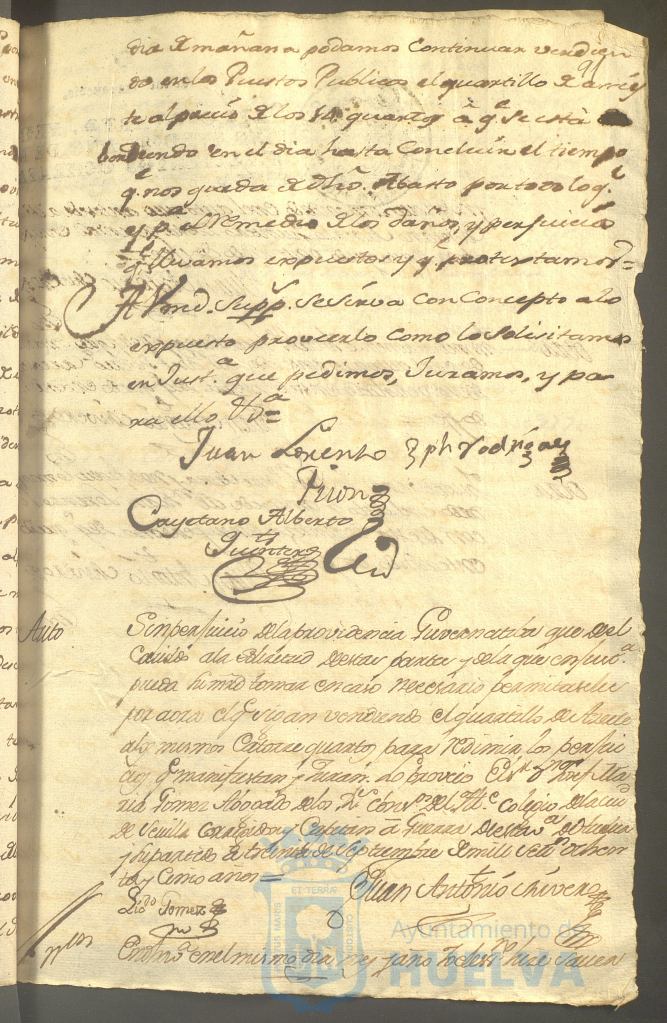 dia de mañana podamos Continuar vendien
do en los Puestos Publicos el quartillo de azey
te al precio de los 14 quartos à q.e se està
bendiendo en el dia hasta Concluir el tiempo
q.e nos queda de dho. Abasto por todo lo q.e
y p.a el remedio de los daños, y perjuicios
q.e llevamos expuestos y q.e protestamos=
A Vmd. Supp.s se sirva con Concepto a lo
expuesto proveerlo como lo solisitamos
en Just.a que pedimos, Juramos, y pa
ra ello V.a=
Juan Lorento Jph Rodrigz
Prion
Cayetano Alberto
Quintero
Auto
Sin perjuicio de la providencia Guvernativa que de el
Cavildo a la solicitud de estas partes y de la que en su
pueda su mrd tomar en caso necesario permitaseles
por aora el q.e sigan vendiendo el quartillo de Azeite
a los mismos Catorze quartos para redimir los perjui
cios q.e manifiestan y Juran. Lo proveio el S.r D.n Josef Ma
ria Gomez Abogado de los R.s Cons.s del Ill.e Colegio de la ciu.d
de Sevilla Corregidor y Capitan à Guerra de esta v.a de Huelva
y su partido à treinta de Septiembre de mill setz.s ochen
ta y Cinco años=
Juan Antonio Chivero
Lizdo Gomez
En la v.a en el mismo dia mes y año Yo el es.no hice saver
Ayuntamiento de
HUELVA